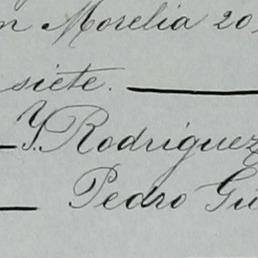 n Morelia 20
siete.
Y. Rodriguez
Pedro Gu